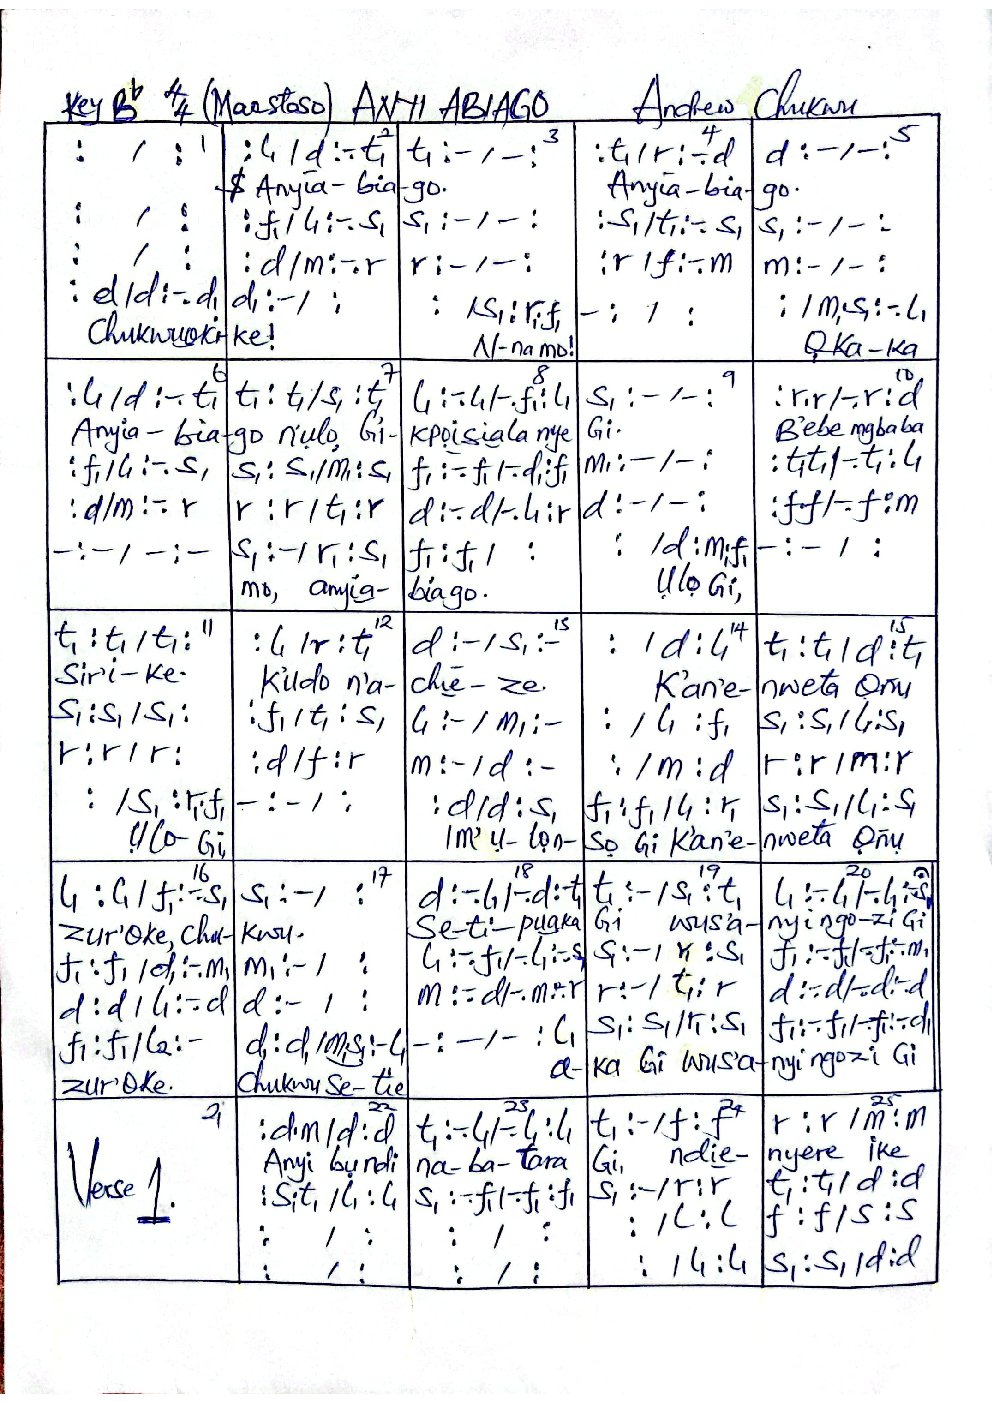 Key Bb 4/4 (Maestoso) ANYI ABIAGO Andrew Chukwu
: / : 1 :l₁ / d :-.t₁ 2 t₁ :- / - : 3 :t₁ / r :-.d 4 d :- / - : 5
$ Anyia-bia-go. Anyia-bia-go.
: / : :f₁ / l₁ :-. s₁ s₁ :- / - : :s₁ / t₁ :-. s₁ s₁ :- / - :
: / : :d / m :-. r r :- / - : :r / f :-. m m :- / - :
: d / d :-. d₁ d₁ :- / : : / s₁ : r₁.f₁ - : / : : / m₁.s₁ :-. l₁
Chukwuoki-ke! N-na mo! Ọka-ka
:l₁ / d :-. t₁ 6 t₁ : t₁ / s₁ : t₁ 7 l₁ :-.l₁ / -.f₁ : l₁ 8 s₁ :- / - : 9 : r.r / -.r : d 10
Anyia-bia-go n'ulọ Gi- kpọisiala nye Gi. B'ebe mgbaba
:f₁ / l₁ :-. s₁ s₁ : s₁ / m₁ : s₁ f₁ :-. f₁ / -.d₁ : f₁ m₁ :- / - : : t₁.t₁ / -.t₁ : l₁
:d / m :-. r r : r / t₁ : r d :-.d / -.l₁ : r d :- / - : : f.f / -.f : m
- : - / - : - s₁ :- / r₁ : s₁ f₁ : f₁ / : : / d : m₁.f₁ - : - / :
mo, anyia- biago. Ụlọ Gi,
t₁ : t₁ / t₁ : 11 :l₁ / r : t₁ 12 d :- / s₁ :- 13 : / d : l₁ 14 t₁ : t₁ / d : t₁ 15
Siri-ke. K'udo n'a- chie-ze. K'an'e- nweta Ọñụ
s₁ : s₁ / s₁ : :f₁ / t₁ : s₁ l₁ :- / m₁ :- : / l₁ : f₁ s₁ : s₁ / l₁ : s₁
r : r / r : :d / f : r m :- / d :- : / m : d r : r / m : r
: / s₁ : r₁.f₁ - : - / : : d / d : s₁ f₁ : f₁ / l₁ : r₁ s₁ : s₁ / l₁ : s₁
Ụlọ- Gi, Im' ụ-lọn- sọ Gi K'an'e- nweta Ọñụ
l₁ : l₁ / f₁ :-.s₁ 16 s₁ :- / : 17 d :-.l₁ / -.d : t₁ 18 t₁ :- / s₁ : t₁ 19 l₁ :-.l₁ / -.l₁ :-.s₁ 20
zur'Oke, Chu- kwu. Se-ti-pugka Gi wus'a- nyi ngo-zi Gi
f₁ : f₁ / d₁ :-. m₁ m₁ :- / : l₁ :-. f₁ / -.l₁ :-. s₁ s₁ :- / r₁ : s₁ f₁ :-.f₁ / -.f₁ :-. m₁
d : d / l₁ :-. d d :- / : m :-. d / -.m :-. r r :- / t₁ : r d :-.d / -.d :-.d
f₁ : f₁ / l₂ :- d₁ : d₁ / m₁.s₁ :-. l₁ - : - / - : l₁ s₁ : s₁ / r₁ : s₁ f₁ :-. f₁ / -.f₁ :-.d₁
zur'Oke. Chukwu Se-tie a- ka Gi wus'a-nyi ngozi Gi
21 : d.m / d : d 22 t₁ :-.l₁ / -.l₁ : l₁ 23 t₁ :- / f : f 24 r : r / m : m 25
Verse 1. Anyi bụ ndi na-ba-tara Gi, ndie- nyere ike
: s₁.t₁ / l₁ : l₁ s₁ :-.f₁ / -.f₁ : f₁ s₁ :- / r : r t₁ : t₁ / d : d
: / : : / : : / l : l f : f / s : s
: / : : / : : / l₁ : l₁ s₁ : s₁ / d : d